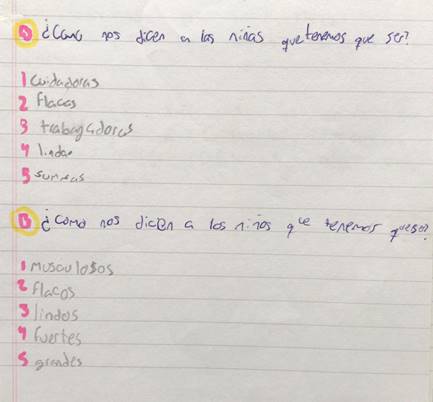 A ¿Como nos dicen a las niñas que tenemos que ser?
1 Cuidadoras
2 flacas
3 trabagadores
4 lindas
5 sumisas
B ¿Como nos dicen a los niños que tenemos que ser?
1 Musculosos
2 flacos
3 lindos
4 fuertes
5 grandes